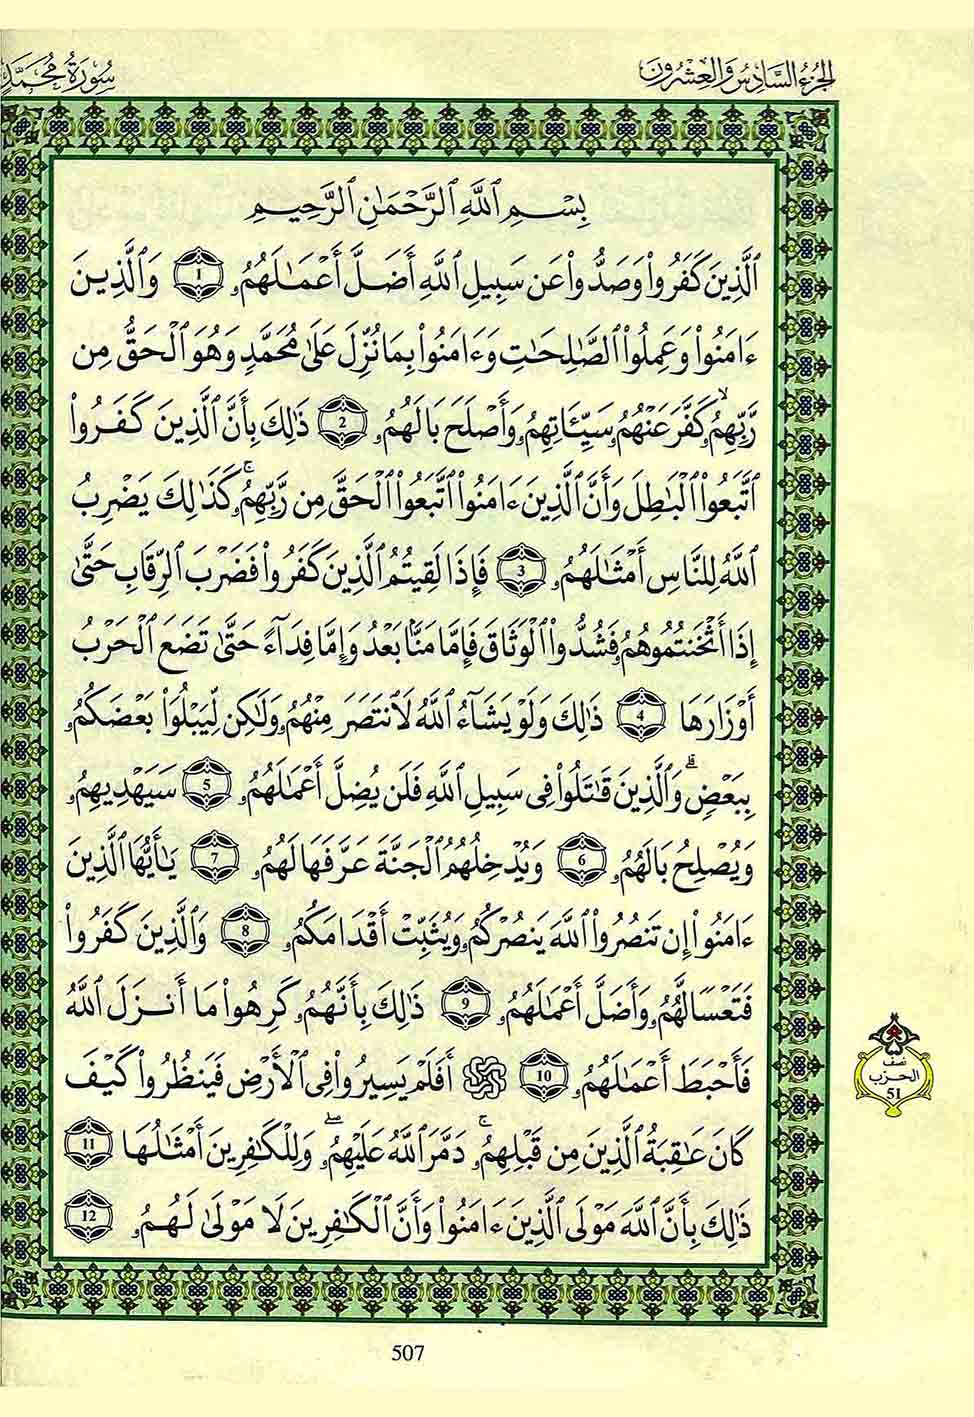 الجُزْءُ السَّادِسُ وَالعِشْرُونَ
سُورَةُ مُحَمَّدٍ
بِسْمِ ٱللَّهِ ٱلرَّحْمَٰنِ ٱلرَّحِيمِ
ٱلَّذِينَ كَفَرُوا۟ وَصَدُّوا۟ عَن سَبِيلِ ٱللَّهِ أَضَلَّ أَعْمَٰلَهُمُۥ 1 وَٱلَّذِينَ
ءَامَنُوا۟ وَعَمِلُوا۟ ٱلصَّٰلِحَٰتِ وَءَامَنُوا۟ بِمَا نُزِّلَ عَلَىٰ مُحَمَّدٍ وَهُوَ ٱلْحَقُّ مِن
رَّبِّهِمُۥ كَفَّرَ عَنْهُمُۥ سَيِّـَٔاتِهِمُۥ وَأَصْلَحَ بَالَهُمُۥ 2 ذَٰلِكَ بِأَنَّ ٱلَّذِينَ كَفَرُوا۟
ٱتَّبَعُوا۟ ٱلْبَٰطِلَ وَأَنَّ ٱلَّذِينَ ءَامَنُوا۟ ٱتَّبَعُوا۟ ٱلْحَقَّ مِن رَّبِّهِمُۥ ۚ كَذَٰلِكَ يَضْرِبُ
ٱللَّهُ لِلنَّاسِ أَمْثَٰلَهُمُۥ 3 فَإِذَا لَقِيتُمُ ٱلَّذِينَ كَفَرُوا۟ فَضَرْبَ ٱلرِّقَابِ حَتَّىٰ
إِذَا أَثْخَنتُمُوهُمُۥ فَشُدُّوا۟ ٱلْوَثَاقَ فَإِمَّا مَنًّا بَعْدُ وَإِمَّا فِدَآءً حَتَّىٰ تَضَعَ ٱلْحَرْبُ
أَوْزَارَهَا 4 ذَٰلِكَ وَلَوْ يَشَآءُ ٱللَّهُ لَٱنتَصَرَ مِنْهُمُۥ وَلَٰكِن لِّيَبْلُوَا۟ بَعْضَكُمُۥ
بِبَعْضٍ ۗ وَٱلَّذِينَ قَٰتَلُوا۟ فِى سَبِيلِ ٱللَّهِ فَلَن يُضِلَّ أَعْمَٰلَهُمُۥ 5 سَيَهْدِيهِمُۥ
وَيُصْلِحُ بَالَهُمُۥ 6 وَيُدْخِلُهُمُ ٱلْجَنَّةَ عَرَّفَهَا لَهُمُۥ 7 يَٰأَيُّهَا ٱلَّذِينَ
ءَامَنُوا۟ إِن تَنصُرُوا۟ ٱللَّهَ يَنصُرْكُمُۥ وَيُثَبِّتْ أَقْدَامَكُمُۥ 8 وَٱلَّذِينَ كَفَرُوا۟
فَتَعْسًا لَّهُمُۥ وَأَضَلَّ أَعْمَٰلَهُمُۥ 9 ذَٰلِكَ بِأَنَّهُمُۥ كَرِهُوا۟ مَا أَنزَلَ ٱللَّهُ
فَأَحْبَطَ أَعْمَٰلَهُمُۥ 10 أَفَلَمْ يَسِيرُوا۟ فِى ٱلْأَرْضِ فَيَنظُرُوا۟ كَيْفَ
كَانَ عَٰقِبَةُ ٱلَّذِينَ مِن قَبْلِهِمُۥ ۚ دَمَّرَ ٱللَّهُ عَلَيْهِمُۥ ۖ وَلِلْكَٰفِرِينَ أَمْثَٰلُهَا 11
ذَٰلِكَ بِأَنَّ ٱللَّهَ مَوْلَى ٱلَّذِينَ ءَامَنُوا۟ وَأَنَّ ٱلْكَٰفِرِينَ لَا مَوْلَىٰ لَهُمُۥ 12
نصف
الحزب
51
507